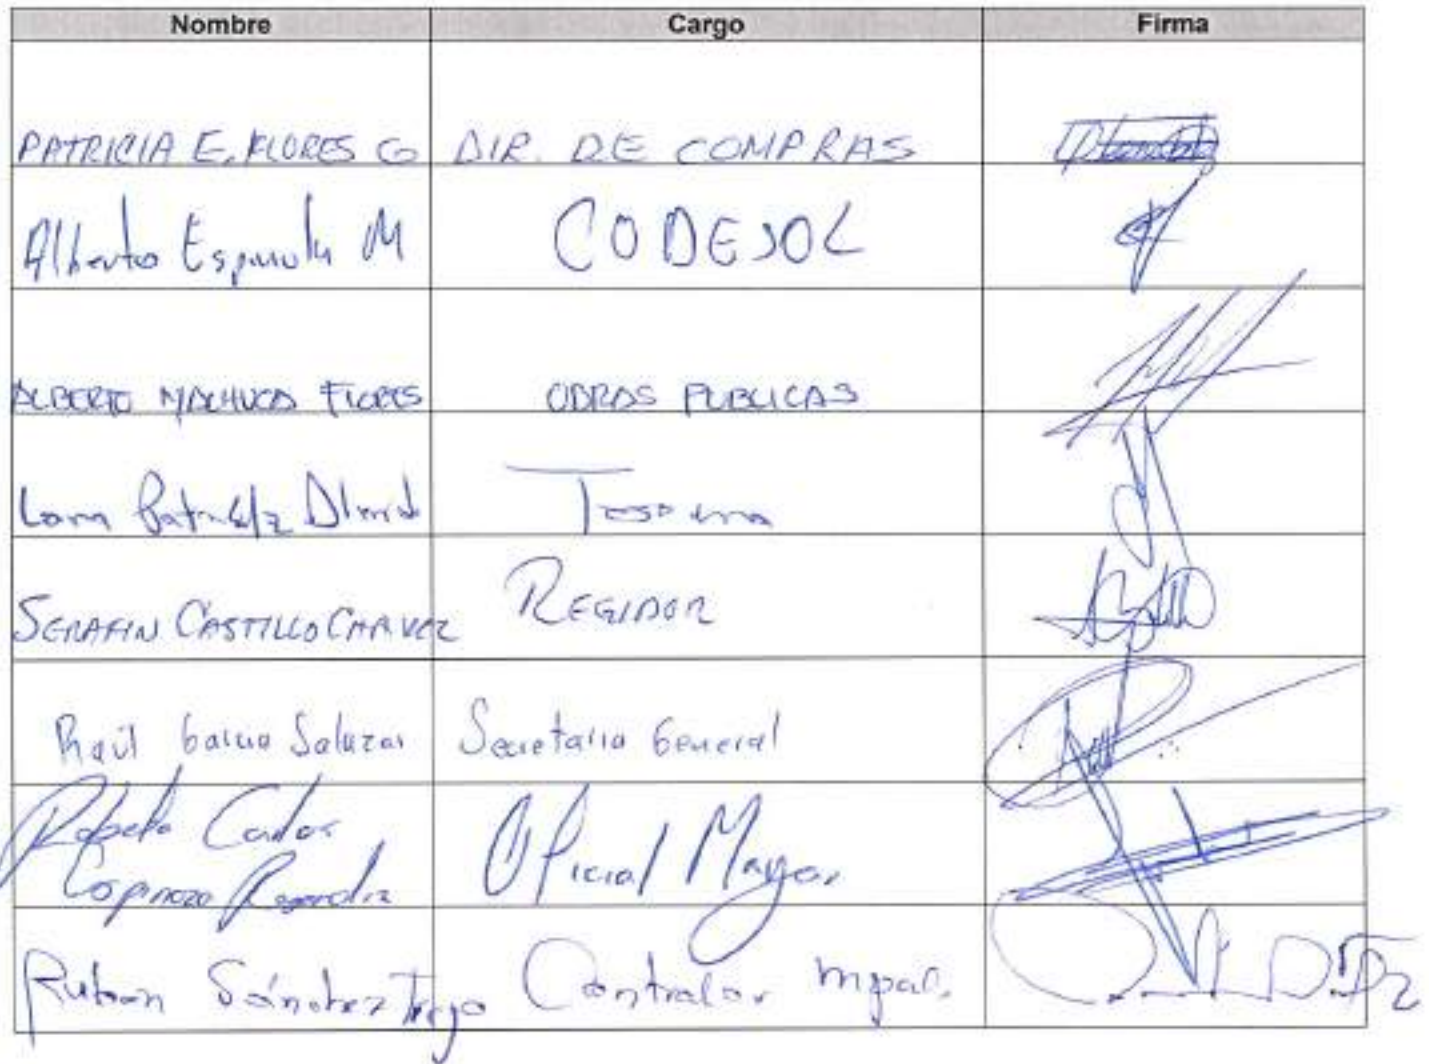 Nombre Cargo Firma
PATRICIA E. FLORES G DIR. DE COMPRAS
Alberto Espinola M CODESOL
ALBERTO MACHUCA FLORES OBRAS PUBLICAS
Tesorera
SERAFIN CASTILLO CHAVEZ REGIDOR
Raúl Garcia Salazar Secretario General
Roberto Carlos
Espinoza Oficial Mayor
Ruben Sánchez Trejo Contralor Mpal.